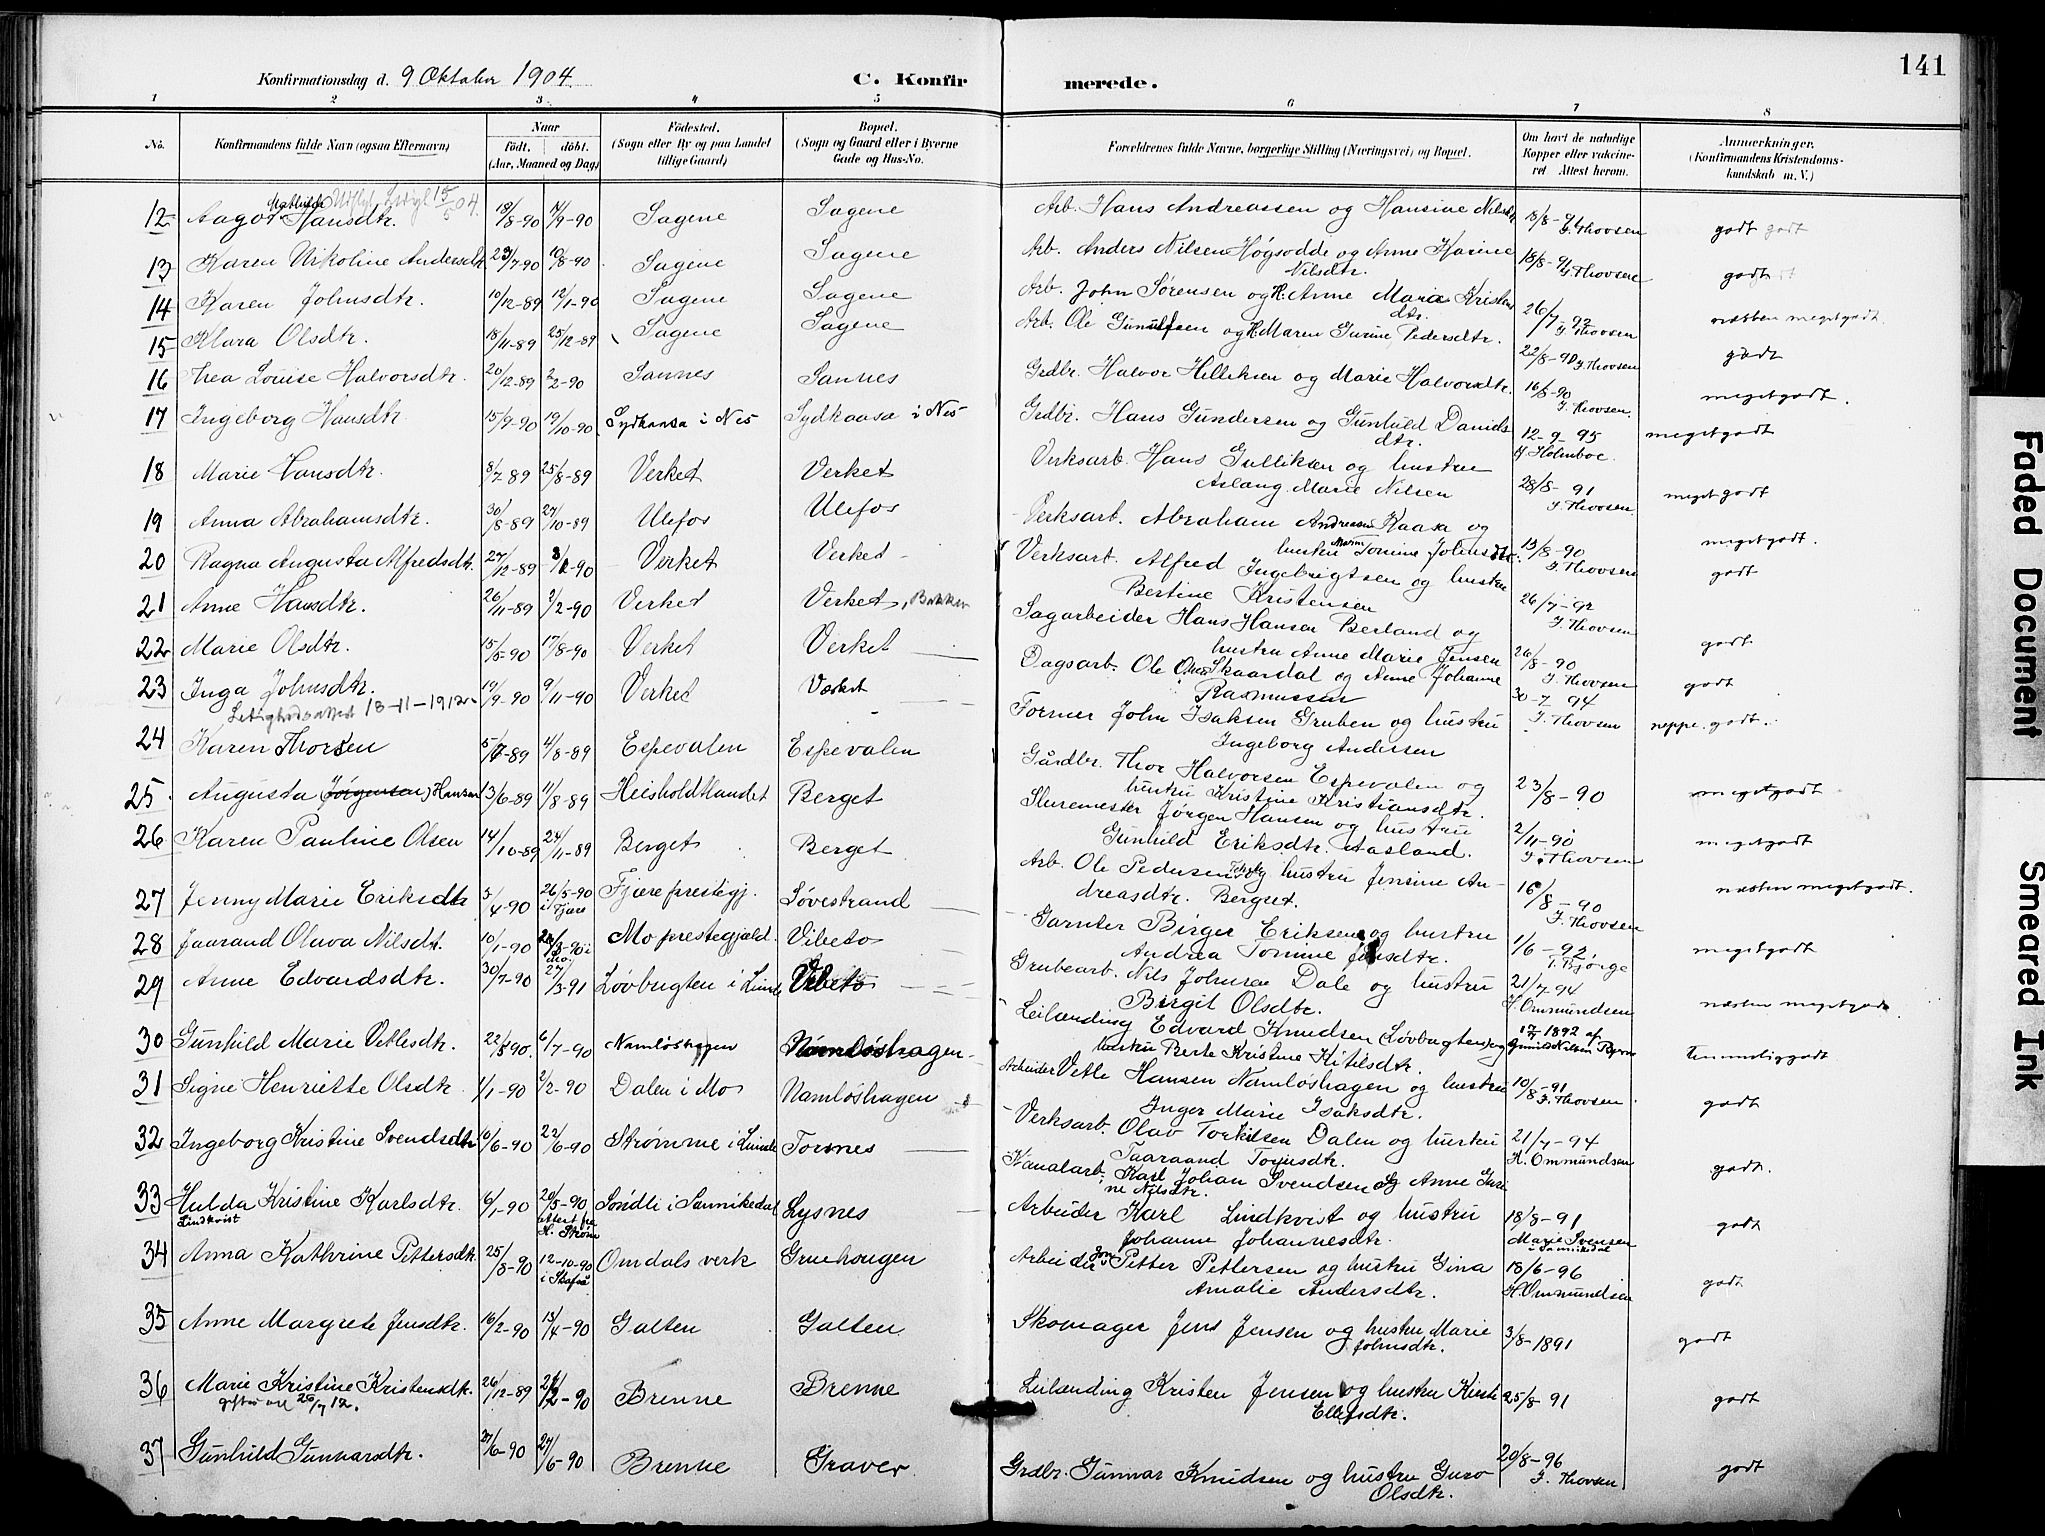 141
Konfirmationsdag d. 9 Oktober 1904. C. Konfirmerede.
1 2 3 4 5 6 7 8
No. Konfirmandens fulde Navn (ogsaa Efternavn) Naar født. døbt. (Aar, Maaned og Dag) Fødested. (Sogn eller By og paa Landet tillige Gaard) Bopæl. (Sogn og Gaard eller i Byerne Gade og Hus-No. Forældrenes fulde Navne, borgerlige Stilling (Næringsvei) og Bopæl. Om havt de naturlige Kopper eller vaccineret. Attest herom. Anmærkninger. (Konfirmandens Kristendomskundskab m. V.)
12 Aagot Mathilde Hansdtr. 18/8-90 14/9-90 Sagene Sagene Arb. Hans Andreassen og Hansine Nilsdtr 18/8-91 J. Thovsen godt godt
13 Karen Nikoline Andersdtr 23/7-90 10/8-90 Sagene Sagene Arb. Anders Nilsen Høgsodde og Anne Karine Nilsdtr. 18/8-91 J. Thovsen godt
14 Karen Johnsdtr. 10/12-89 12/1-90 Sagene Sagene Arb. John Sørensen og H. Anne Maria Kristensdtr. 26/7-92 J. Thovsen næsten megetgodt.
15 Klara Olsdtr. 18/11-89 25/12-89 Sagene Sagene Arb. Ole Gunulfsen og H. Maren Gurine Pedersdtr. 22/8-90 J. Thovsen godt
16 Thea Louise Halvorsdtr. 20/12-89 2/2-90 Sannes Sannes Grdbr. Halvor Helliksen og Marie Halvorsdtr. 16/8-90 J. Thovsen. megetgodt.
17 Ingeborg Hansdtr. 15/9-90 19/10-90 Sydkaasa i Nes Sydkaasa i Nes Grdbr. Hans Gundersen og Gunhild Danielsdtr. 12-9-95 H Holmboe. megetgodt
18 Marie Hansdtr. 8/7-89 25/8-89 Verket Verket Verksarb. Hans Gulliksen og hustru Aslaug Marie Nilsen 28/8-91 J. Thovsen meget godt
19 Anna Abrahamsdtr. 30/8-89 27/10-89 Ulefos Ulefos Verksarb. Abraham Andreassen Kaasa og hustru Maren Tomine Johnsdtr. 13/8-90 J. Thovsen megetgodt.
20 Ragna Augusta Alfredsdtr. 27/12-89 Verket Verket Verksarb. Alfred Ingebrigtsen og hustru Bertine Kristensen 26/7-92 J. Thovsen godt
21 Anne Hansdtr. 26/11-89 2/2-90 Verket Verket, Bakken Sagarbeider Hans Hansen Berland og hustru Anne Marie Jensen 26/8-90 J. Thovsen godt
22 Marie Olsdtr. 15/5-90 17/8-90 Verket Verket Dagsarb. Ole Skaardal og Anne Johanne Rasmussen 30-7 94 J. Thovsen godt
23 Inga Johnsdtr. 19/9-90 9/11-90 Verket Værket Former John Isaksen Gruben og hustru Ingeborg Andersen neppe godt.
Ledighedsattest 13-11-1912
24 Karen Thorsen 5/7-89 4/8-89 Espevalen Espevalen Gårdbr. Thor Halvorsen Espevalen og hustru Kristine Kristiansdtr. 23/8-90 megetgodt
25 Augusta (Jørgensen) Hansen 13/6-89 11/8-89 Heisholdtlandet Berget Sluremester Jørgen Hansen og hustru Gunhild Eriksdtr. Aasland. 2/11-90 J. Thovsen megetgodt
26 Karen Pauline Olsen 14/10-89 24/11-89 Berget Berget Arb. Ole Pedersen og hustru Jensine Andreasdtr. Berget. 16/8-90 J. Thovsen næsten megetgodt.
27 Jenny Marie Eriksdtr 3/4-90 26/5-90 i Fjære Fjære prestegj. Søvestrand Gartner Birger Eriksen og hustru Andrea Tomine Jensdtr. 1/6-92 T. Bjørge megetgodt
28 Jaarand Olava Nilsdtr. 10/1-90 Mo prestegjæld. Vibeto Grubearb. Nils Johnsen Dale og hustru Birgit Olsdtr. 21/7-94 H. Ommundsen næsten megetgodt
29 Anne Edvardsdtr. 30/7-90 27/3-91 Løvbugten i Lunde Vibeto Leilænding Edvard Knudsen (Løvbugten) og hustru Berte Kristine Kitilsdtr. 1892 af Gunild Nilsen temmelig godt
30 Gunhild Marie Vetlesdtr. 22/5 90. 6/7-90 Namløshagen Namløshagen Arbeider Vetle Hansen Namløshagen og hustru Inger Marie Isaksdtr. 10/8-91 J. Thovsen godt
31 Signe Henriette Olsdtr. 1/1-90 2/2-90 Dalen i Mo Namløshagen Verksarb. Olav Torkilsen Dalen og hustru Taaraand Torjusdtr. 21/7-94 H. Ommundsen godt.
32 Ingeborg Kristine Svendsdtr 10/6-90 22/6-90 Strømme i Lunde Torsnes Kanalarb. Karl Johan Svendsen og Anne Gurine Nilsdtr.
33 Hulda Kristine Karlsdtr. Lindkvist 6/1-90 20/5-90 Søndli i Sannikedal Lysnes Arbeider Karl Lindkvist og hustru Johanne Johannesdtr. 18/8-91 Marie Svensen i Sannikedal godt
34 Anna Kathrine Pettersdtr. 25/8-90 12-10-90 i Skafså Omdals verk Gruehougen Arbeider Petter Pettersen og hustru Gina Amalie Andersdtr. 18/6-96 H. Ommundsen godt
35 Anne Margrete Jensdtr. 16/2-90 13/4-90 Galten Galten Skomager Jens Jensen og hustru Marie Johnsdtr. 3/8-1891 godt
36 Marie Kristine Kristensdtr. 26/12-89 Brenne Brenne Leilænding Kristen Jensen og hustru Kirsti Ellefsdtr. 25/8-91 godt
37 Gunhild Gunnarsdtr. 27/6-90 Brenne Graver Grdbr. Gunnar Knudsen og hustru Guro Olsdtr. 20/8-96 J. Thovsen godt
Faded Document
Smeared Ink